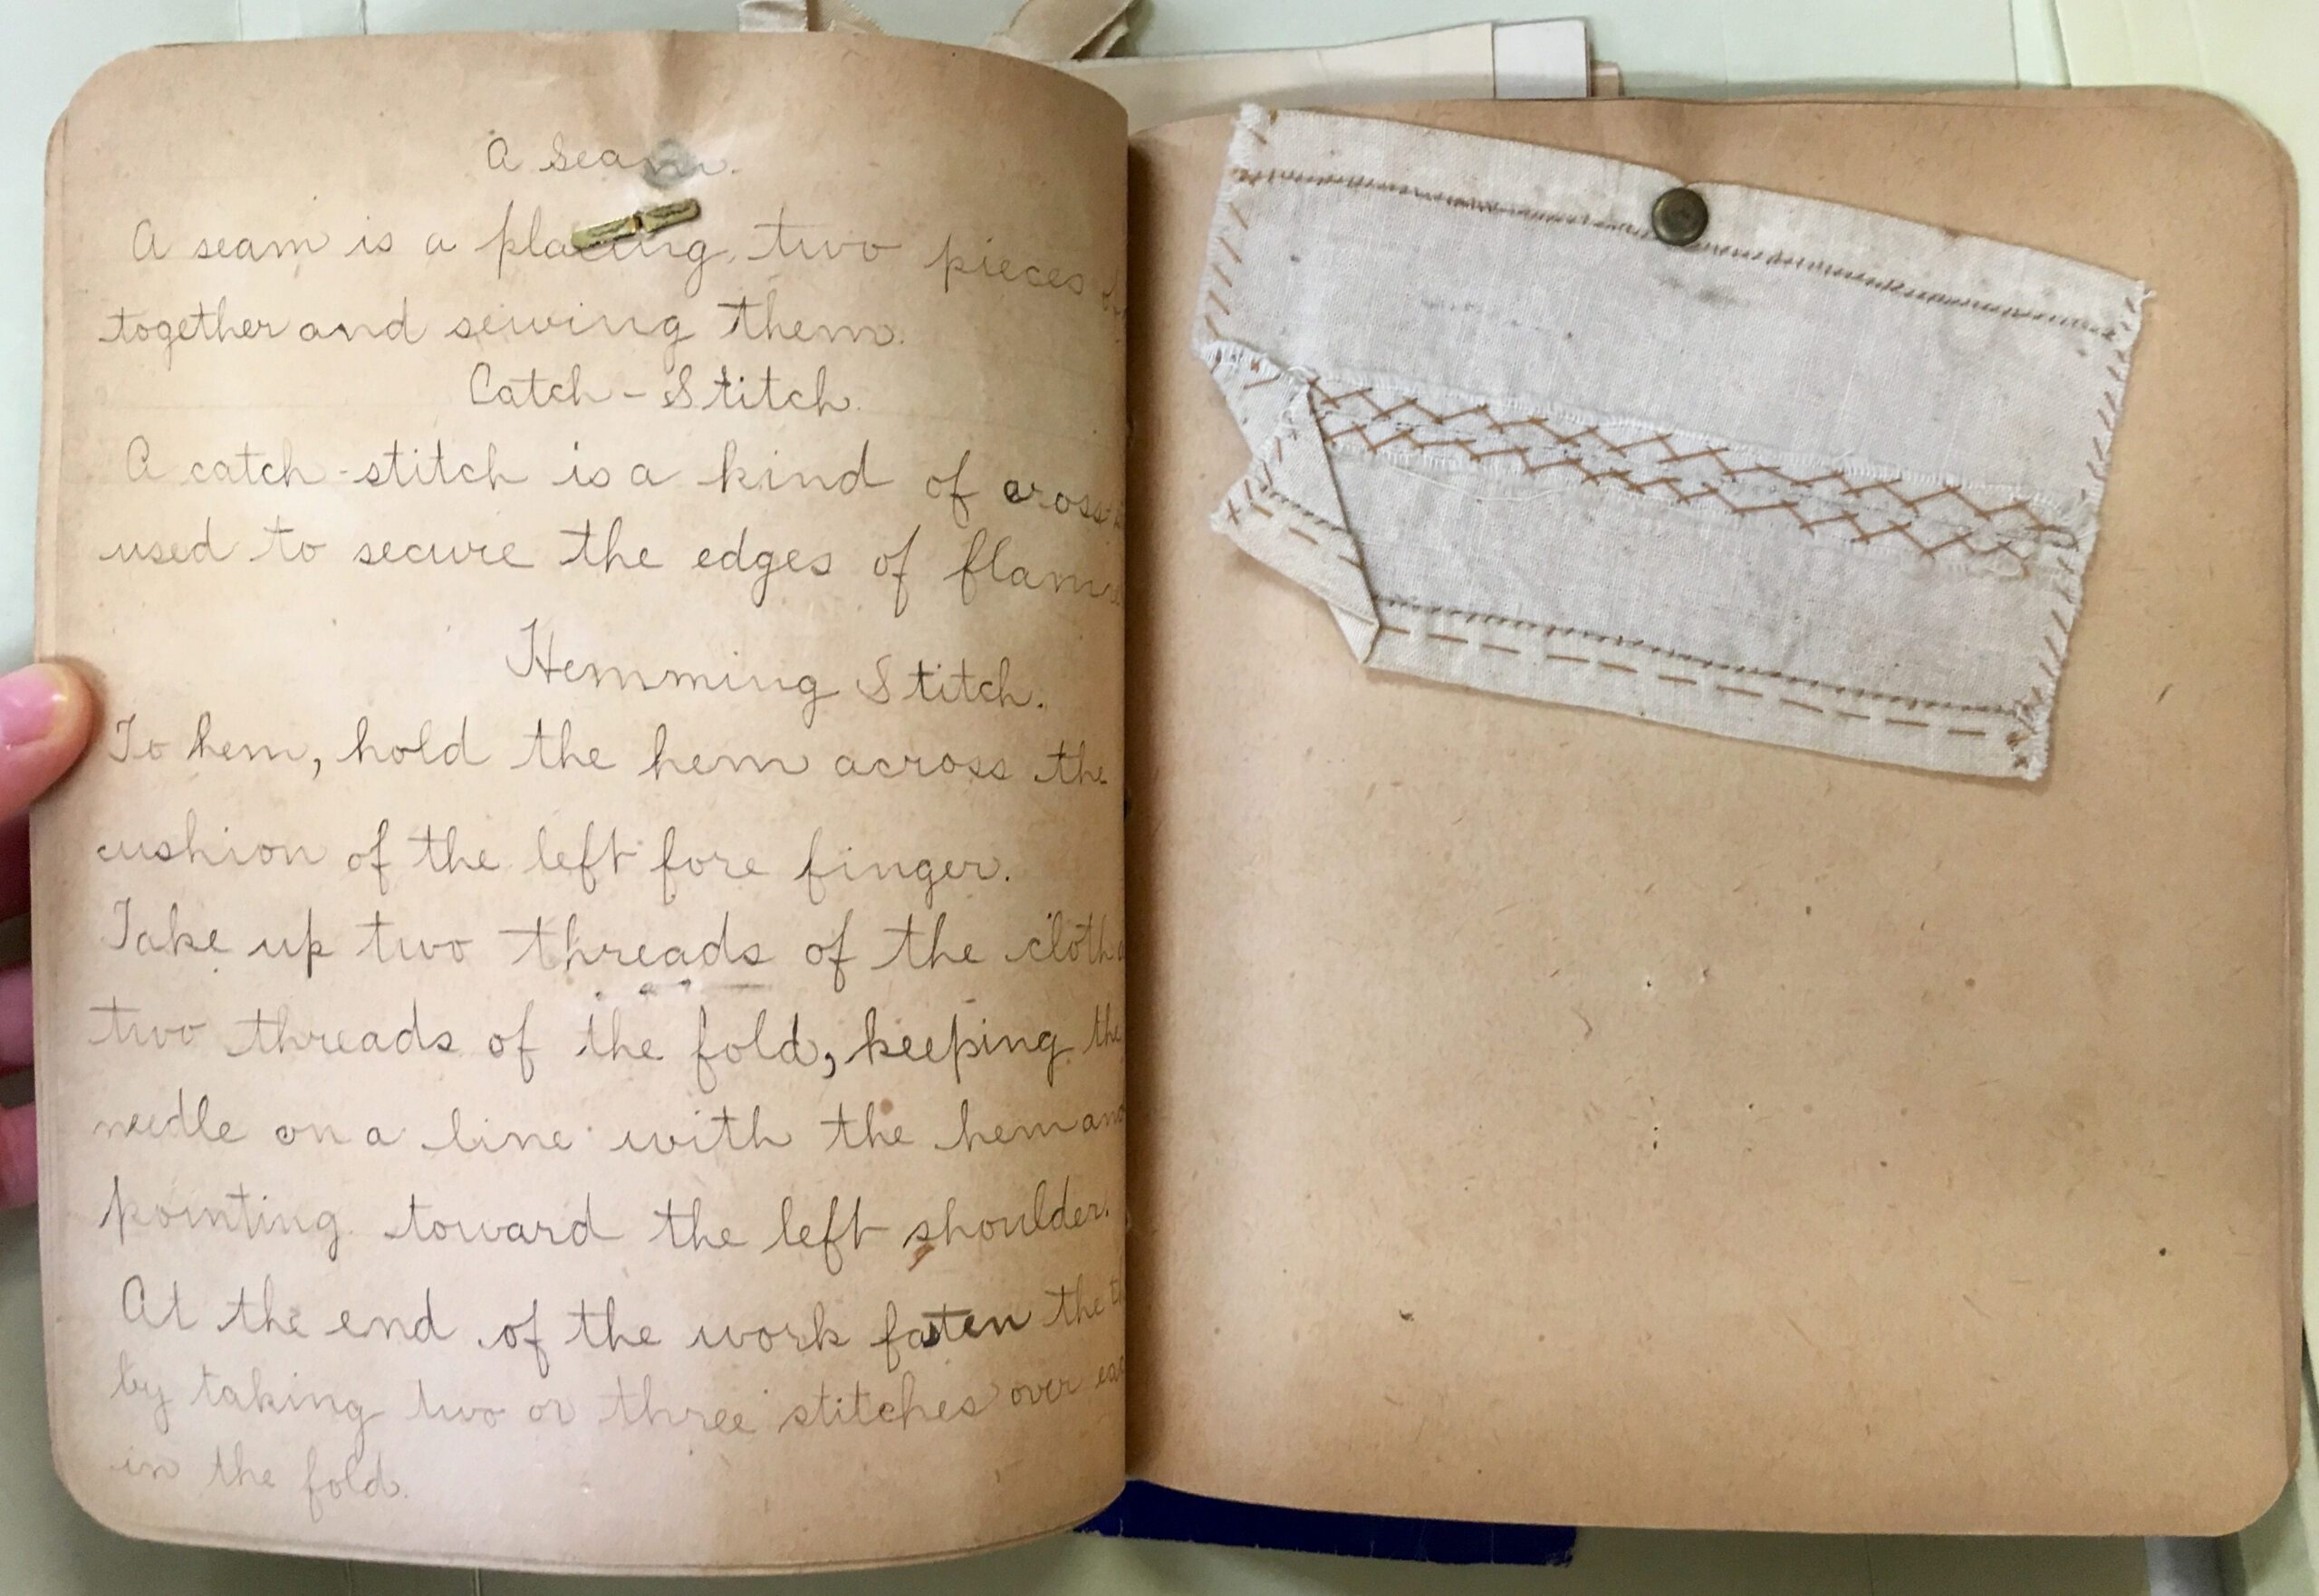 A Seam.
A seam is a placing two pieces
together and sewing them.
Catch-Stitch.
A catch-stitch is a kind of cross
used to secure the edges of
Hemming Stitch.
To hem, hold the hem across the
cushion of the left fore finger.
Take up two threads of the cloth
two threads of the fold, keeping the
needle on a line with the hem and
pointing toward the left shoulder.
At the end of the work fasten the
by taking two or three stitches over
in the fold.